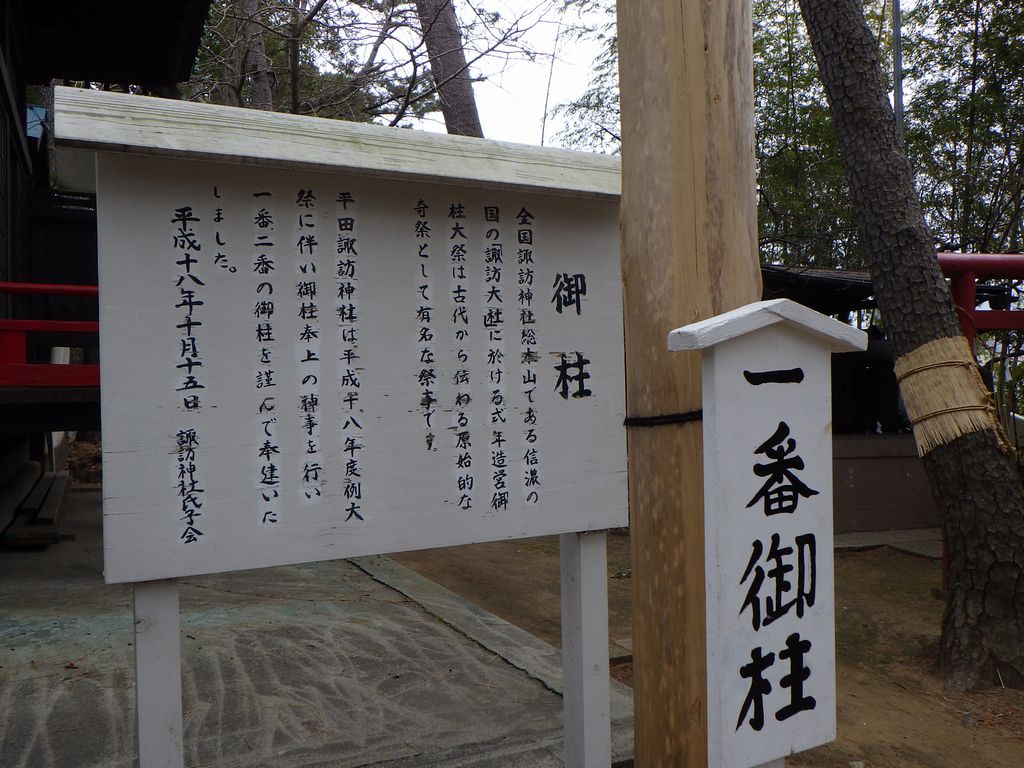 御柱
全国諏訪神社総本山である信濃の
国の諏訪大社に於ける式年造営御
柱大祭は古代から伝わる原始的な
奇祭として有名な祭事です。
平田諏訪神社は平成十八年度例大
祭に伴い御柱奉上の神事を行い
一番二番の御柱を謹んで奉建いた
しました。
平成十八年十月十五日 諏訪神社氏子会
一番御柱